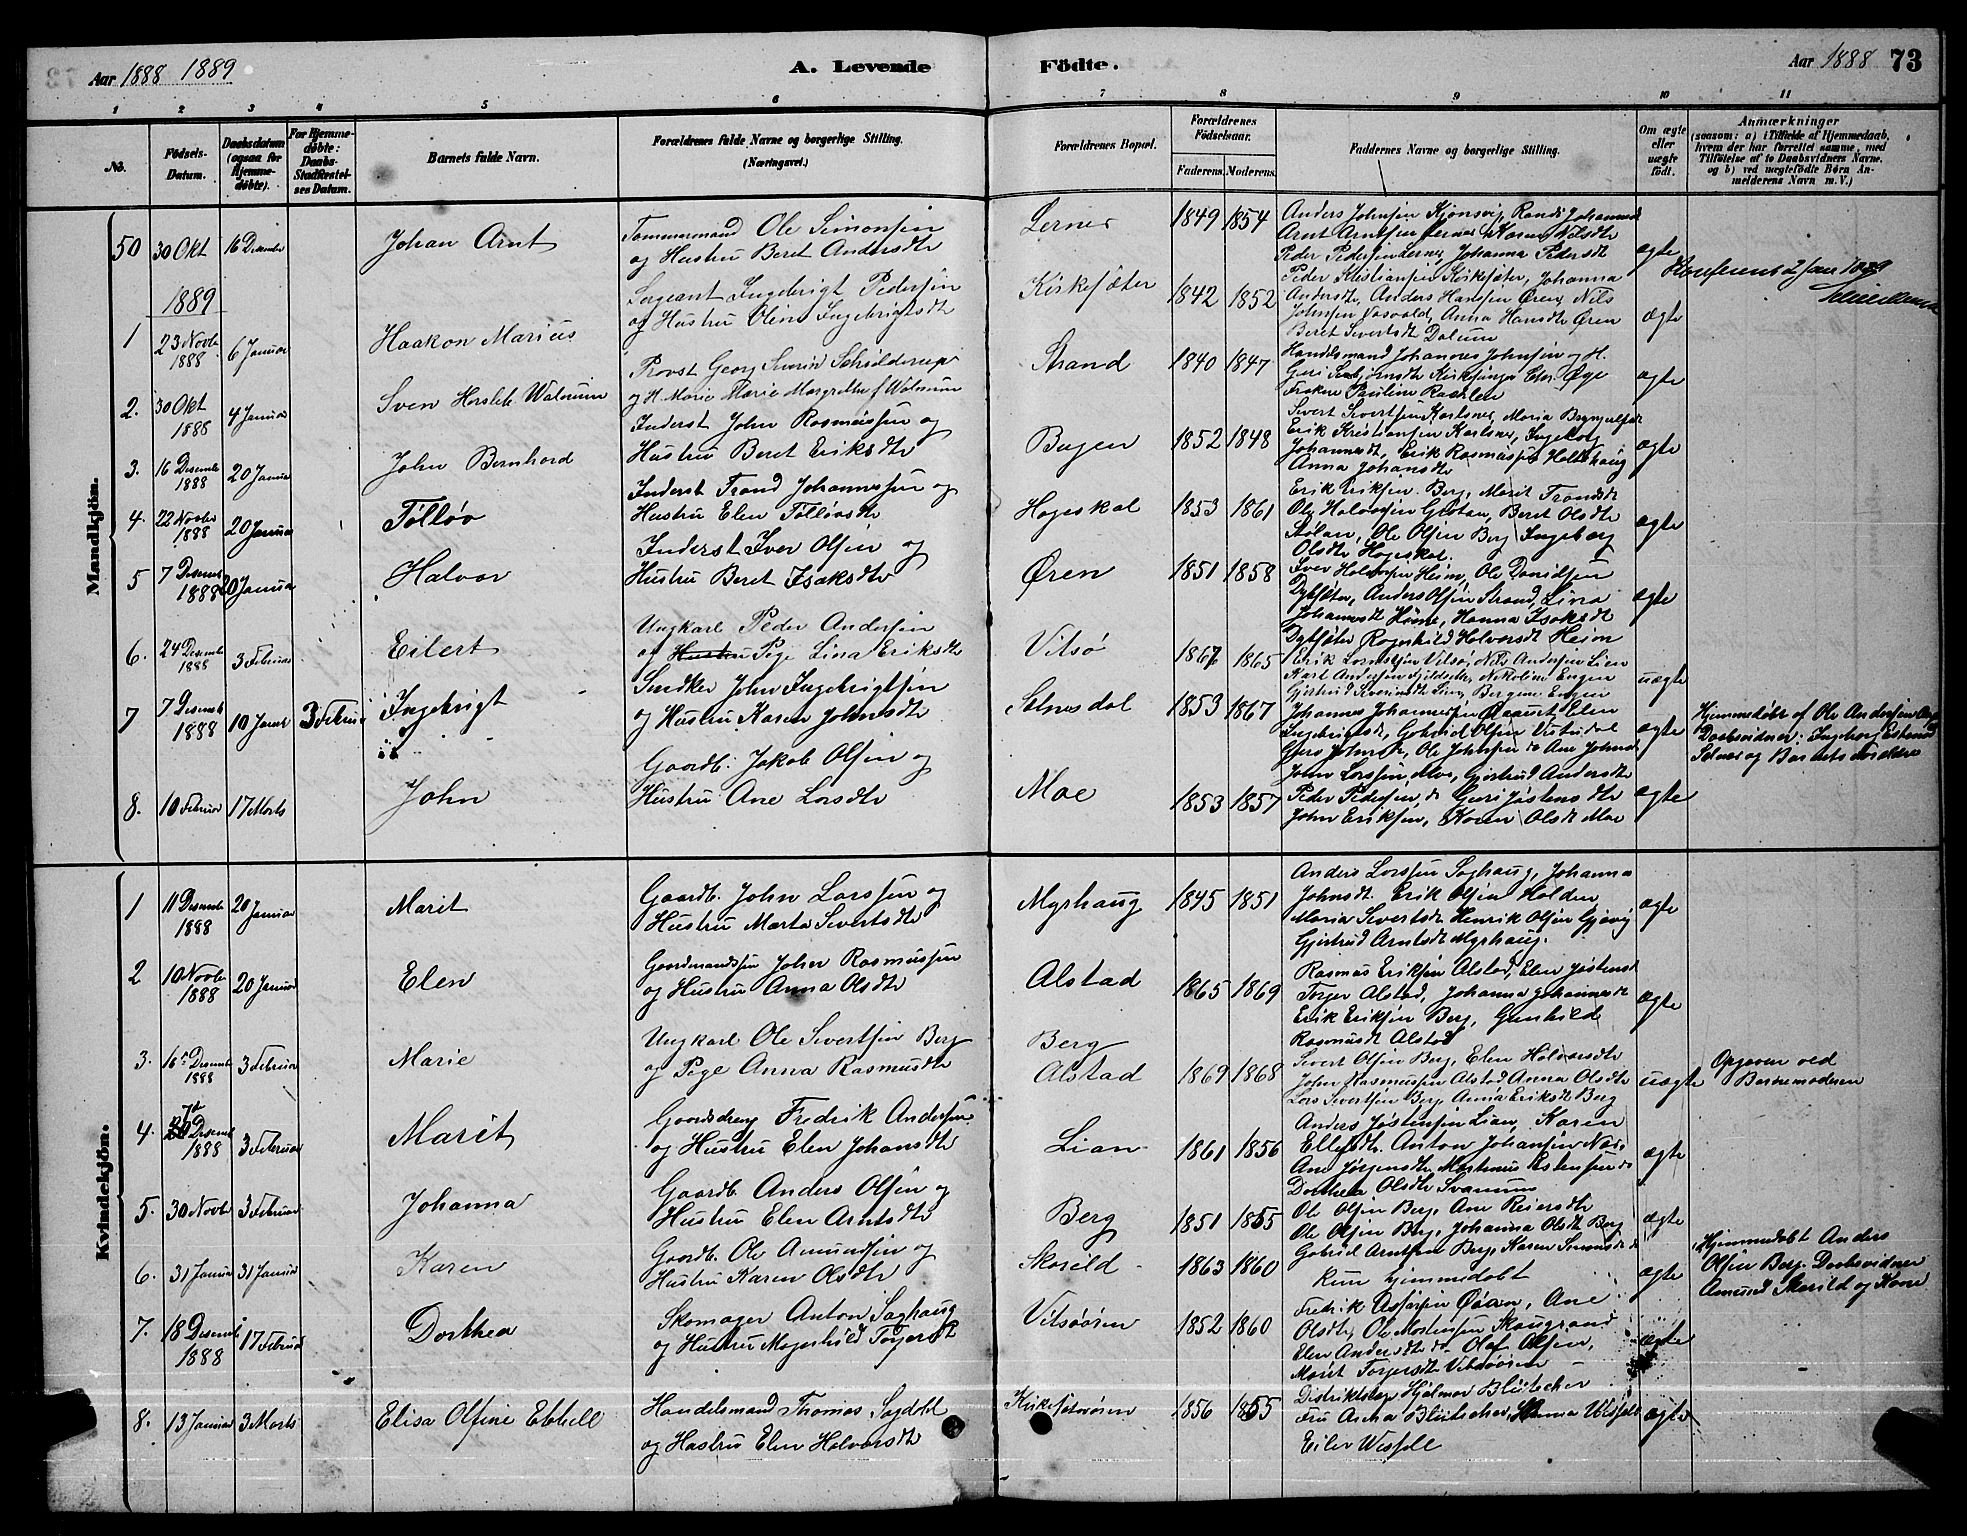 Aar 1888 1889
A. Levende
Födte.
Aar 1888 73
1 2 3 4 5 6 7 8 9 10 11
No.
Födsels-Datum.
Daabsdatum (ogsaa for Hjemmedöbte).
For Hjemmedöbte: Daabs-Stadfæstelses Datum.
Barnets fulde Navn.
Forældrenes fulde Navne og borgerlige Stilling. (Næringsvei.)
Forældrenes Bopæl.
Forældrenes Födselsaar.
Faderens. Moderens.
Faddernes Navne og borgerlige Stilling.
Om ægte eller uægte født.
Anmærkninger
(saasom: a) i Tilfælde af Hjemmedaab, hvem der har forrettet samme, med Tilføielse af to Daabsvidners Navne, og b) ved uægtefödte Börn Anmelderens Navn m. V.)
Mandkjön.
50 30 Okt 16 Desember Johan Arnt
Tømmermand Ole Simonsen
og Hustru Beret Andersdtr
Lernes 1849 1854
Anders Johnsen Kjønsvig, Randi Johannesd
Arnt Arntsen Lernes, Karen Nilsdtr
Peder Pedersen Lernes, Johanna Pedersdtr
ægte
Konfereret 2 Janr 1889
1889
1 23 Novbr 1888 6 Januar Haakon Marius
Sergeant Ingebrigt Pedersen
og Hustru Olene Ingebrigtsdtr
Kirkesæter 1842 1852
Peder Kristiansen Kirkesæter, Johanna
Andersdtr, Anders Hansen Øren, Nils
Johnsen Vasvald, Anna Hansdtr Øren
Beret Sivertsdtr Dalum
ægte
2. 30 Okt 1888 4 Januar Sven Hersleb Walnum
Provst Georg Sverin Schilderup
og H. Marie Margrethe f Walnum
Strand 1840 1847
Handelsmand Johannes Johnsen og H.
Frøken Pauline
ægte
3. 16 Desemb 1888 20 Januar John Bernhard
Inderst John Rasmussen og
Hustru Beret Eriksdtr
Bugen 1852 1848
Sivert Sivertsen Karlsnes, Maria Brynjulfsdt
Erik Kristiansen Karlsnes, Ingeborg
Johannesdt, Erik Rasmussen
Anna Johansdtr
ægte
4. 22 Novbr 1888 20 Januar Tølløv
Inderst Trond Johannessen og
Hustru Elen Tølløvsdtr
Hogeskal 1853 1861
Erik Eriksen Berg, Marit Trondsdt
Ole Halvorsen Grøtan, Beret Olsdtr
Stølan, Ole Olsen Berg, Ingeborg
Olsdtr Hogeskal.
ægte
5 7 Desemb 1888 20 Januar Halvor
Inderst Iver Olsen og
Hustru Beret Isaksdtr
Øren 1851 1858
Iver Halvorsen Heim, Ole Davidsen
Dybsæter, Anders Olsen Strand, Lina
Johannesdt Hønne, Hanna Isaksdt
Dybsæter, Ragnhild Halvorsdt Heim
ægte
6. 24 Desemb 1888 3 Februar Eilert
Ungkarl Peder Andersen
og Hustru Pige Lina Eriksdtr
Vitsø 1867 1865
Erik Larssen Vitsø, Nils Andersen Lien
uægte
7 7 Desemb 1888 10 Janr 3 Februar Ingebrigt
Smedker John Ingebrigtsen
og Hustru Karen Johnsdtr
Selnesdal 1853 1867
ægte
Hjemmedøbt af Ole Andersen
Daabsvidner: Ingeborg
Selnes og Barnets Forældre
8. 10 Februar 17 Marts John
Gaardb. Jakob Olsen og
Hustru Ane Larsdtr
Moe 1853 1857
John Larssen Moe, Gjertrud Andersdtr
Peder Pedersen do Guri Jøstensdtr
John Eriksen, Karen Olsdt Moe
ægte
Kvindekjön.
1 11 Desemb 1888 20 Januar Marit
Gaardb. John Larssen og
Hustru Marta Sivertsdtr
Myrhaug 1845 1851
Anders Larssen Saghaug, Johanna
Johnsdt Erik Olsen Holden
Maria Sivertsdt Henrik Olsen Gjønvig
Gjertrud Arntsdt Myrhaug.
ægte
2 10 Novbr 1888 20 Januar Elen
Gaardmandssøn Johan Rasmussen
og Hustru Anna Olsdtr
Alstad 1865 1869
Rasmus Eriksen Alstad, Elen Jøstensdt
Torger Alstad, Johanna Johannesdt
Erik Eriksen Berg, Gunhild
Rasmusdt Alstad
ægte
3. 16 Desemb 1888 3 Februar Marie
Ungkarl Ole Sivertsen Berg
og Pige Anna Rasmusdtr
Berg
Alstad 1869 1868
Sivert Olsen Berg, Elen Halvorsdtr
John Rasmussen Alstad Anna Olsdtr
Lars Sivertsen Berg, Anna Eriksdt Berg
uægte
Opgaven ved
Barnemoderen
4. 7de Desemb 1888 3 Februar Marit
Gaardsdreng Fredrik Andersen
og Hustru Elen Johansdtr
Lian 1861 1856
Anders Jøstensen Lian, Karen
Ellefsdtr. Anton Johansen Næs,
Ane Jørgensdtr, Martinus Estensen do
Dorthea Olsdtr Svanum
ægte
5. 30 Novbr 3 Februar Johanna
Gaardb. Anders Olsen og
Hustru Elen Arntsdtr
Berg 1851 1855
Ole Olsen Berg, Ane Reiersdtr
Ole Olsen Berg, Johanna Olsdt Berg
Gabriel Arntsen Berg, Karen Simonsdt do
ægte
6. 31 Januar 31 Januar Karen
Gaardb. Ole Amundsen og
Hustru Karen Olsdtr
Skarild 1863 1860
kun hjemmedøbt
ægte
Hjemmedøbt Anders
Olsen Berg. Daabsvidner
Amund Skarild og Kone
7. 18 Desemb 1888 17 Februar Dorthea
Skomager Anton Saghaug
og Hustru Magnhild Torgersdt
Vitsøøren 1852 1860
Fredrik Assersen Øian, Ane
Olsdtr, Ole Mortensen Skaugrand
Elen Andersdtr do Olaf Olsen,
Marit Torgersdtr Vitsøøren
ægte
8. 13 Januar 3 Marts Elisa Olfine Ebbell
Handelsmand Thomas Sagdal
og Hustru Elen Halvorsdtr
Kirkesæterøren 1856 1855
Distriktslæge Hjalmar Blütecher
Fru Anna Blütecher, Hanna Wessel
Eiler Wessel
ægte